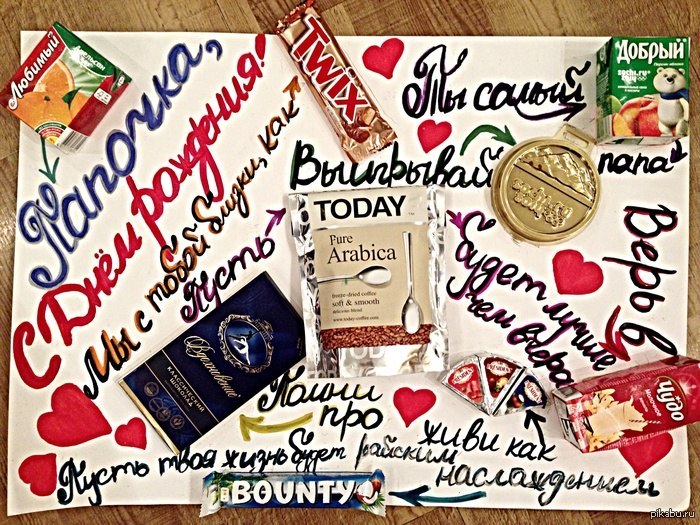 Любимый
Апельсин
Папочка,
С Днём рождения!
Мы с тобой близки, как
TWIX
Ты самый
Добрый
sochi.ru
2014
папа
Выигрывай
Пусть
TODAY
Pure
Arabica
freeze-dried coffee
soft & smooth
delicious blend
www.today-coffee.com
TODAY
будет лучше
чем вчера
Верь в
Чудо
Помни
про
Вдохновение
КЛАССИЧЕСКИЙ
ШОКОЛАД
живи как
Пусть твоя жизнь будет райским
наслаждением
BOUNTY
pikabu.ru